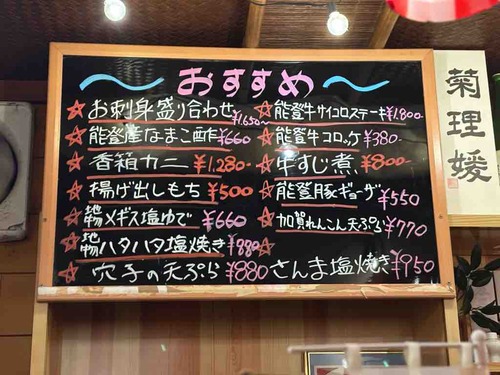 おすすめ
お刺身盛り合わせ ¥1,650-
能登産なまこ酢 ¥660
香箱カニ ¥1,280-
揚げ出しもち ¥500
地物メギス塩ゆで ¥660
地物ハタハタ塩焼き ¥880
穴子の天ぷら ¥880
能登牛サイコロステーキ ¥1,800-
能登牛コロッケ ¥380-
牛すじ煮 ¥800-
能登豚ギョーザ ¥550
加賀れんこん天ぷら ¥770
さんま塩焼き ¥950
菊理媛